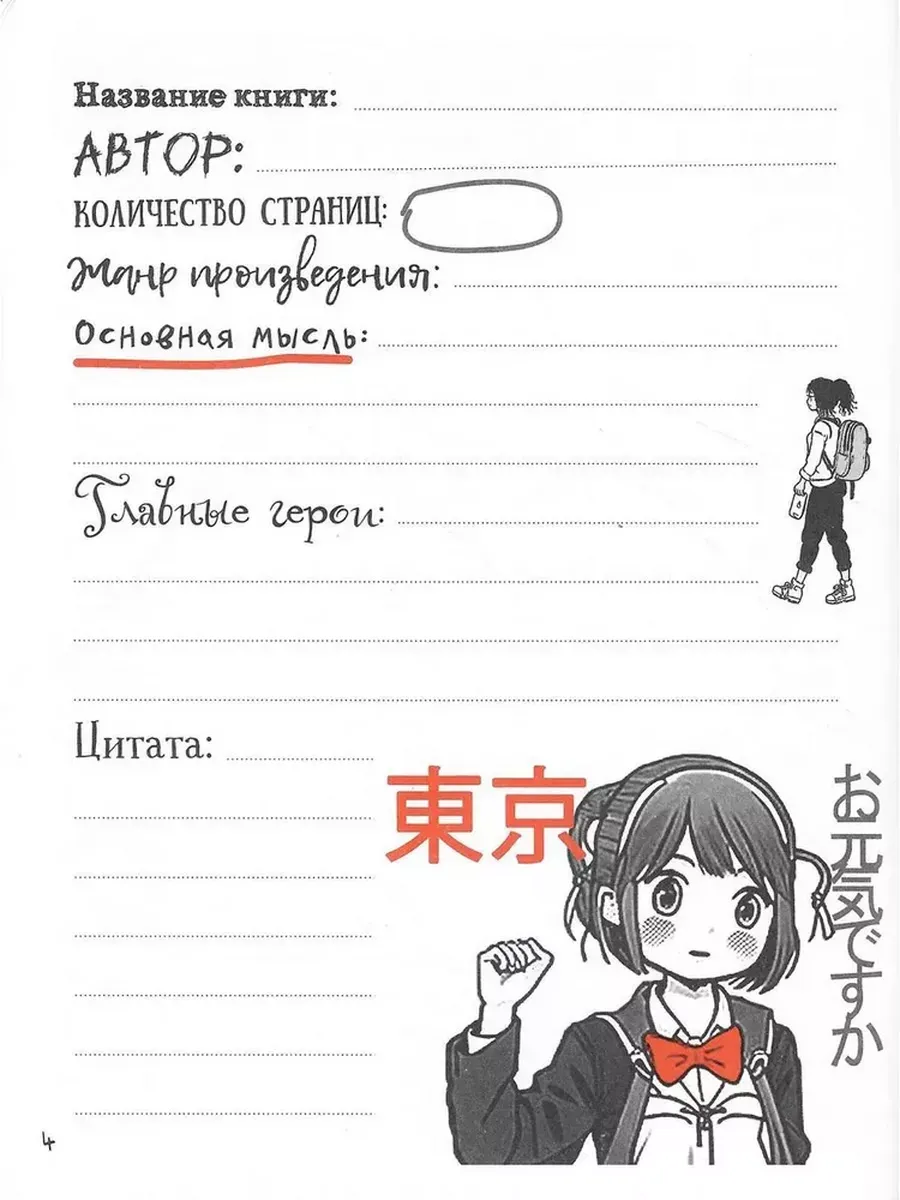 Название книги:
АВТОР:
КОЛИЧЕСТВО СТРАНИЦ:
Жанр произведения:
Основная мысль:
Главные герои:
Цитата:
東京
お元気ですか
4